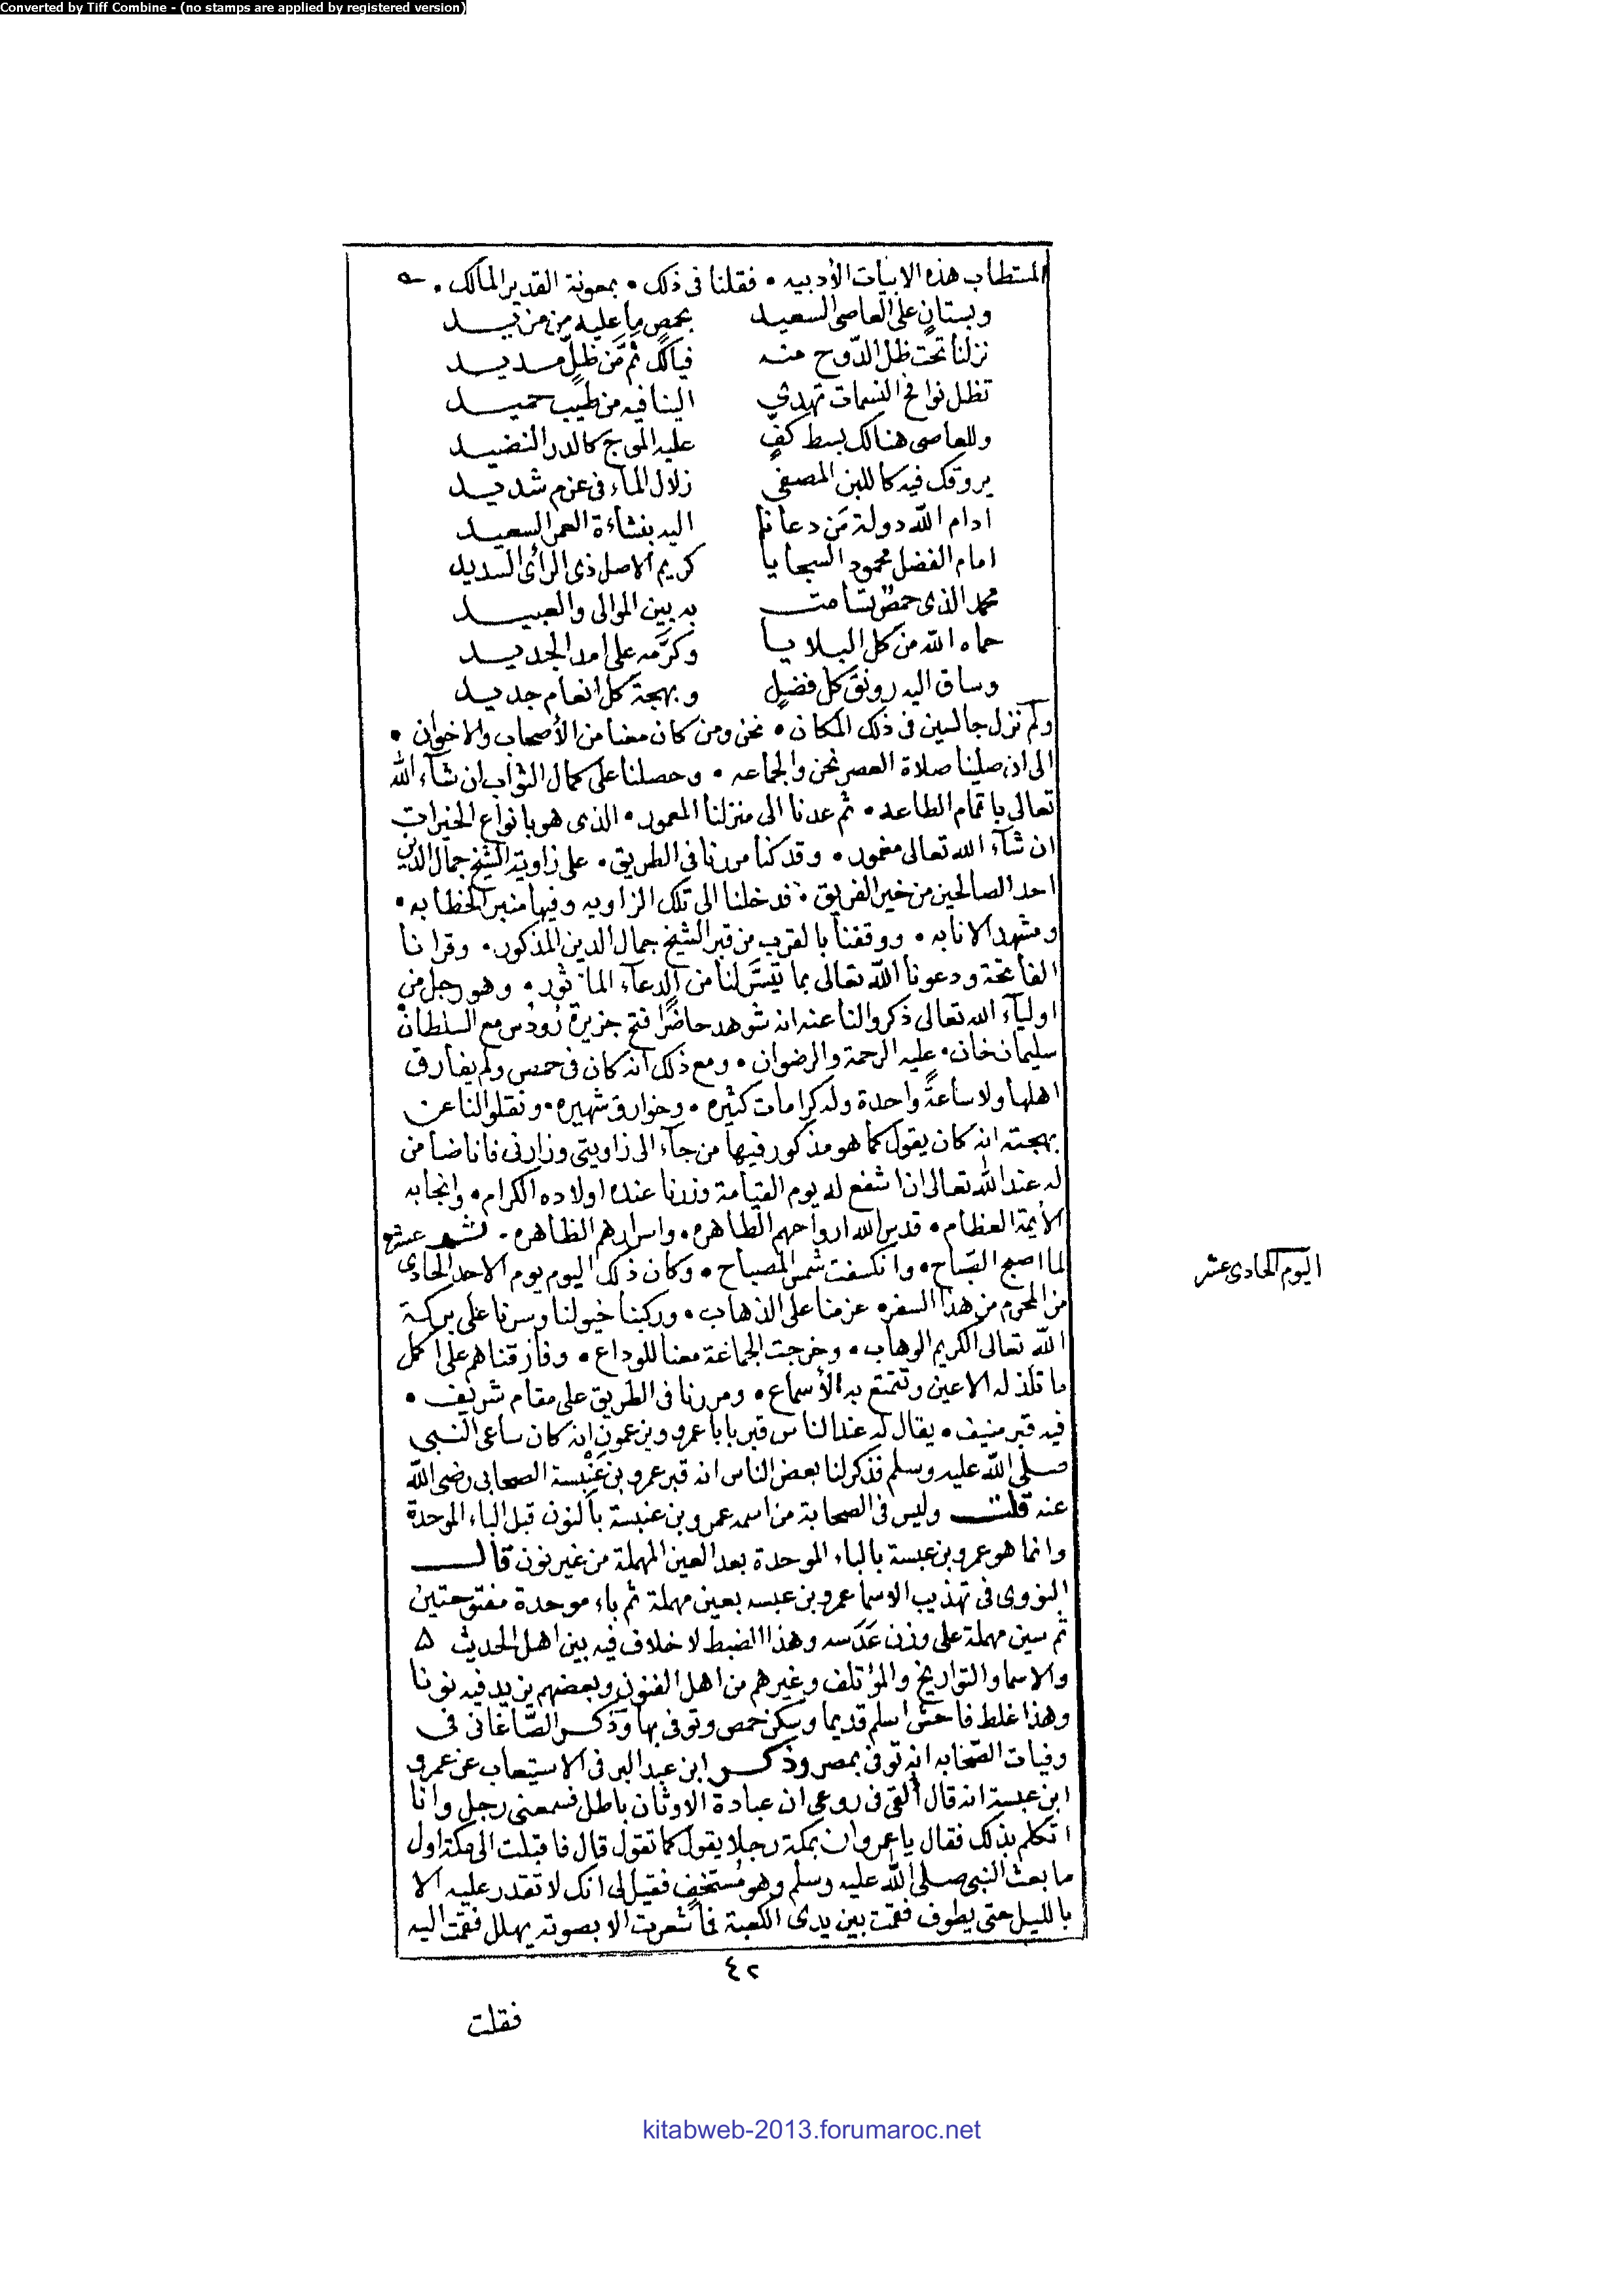 Converted by Tiff Combine - (no stamps are applied by registered version)
المستطاب هذه الابيات الأدبيه • فقلنا فى ذلك • بمعونة القدير المالك •
وبستانٍ على العاصى السعيد بحمصٍ ما عليه من مزيد
نزلنا تحت ظل الدّوح منه فيالك ثَمَّ من ظلٍّ مديد
تظل نوافح النسمات تهدي الينا فيه من طيب حميد
وللعاصى هنالك بسط كفٍّ عليه الموج كالدر النضيد
يروقك فيه كاللبن المصفى زلال الماء فى عزم شديد
ادام الله دولة مَن دعانا اليه بنشاءة العمر السعيد
امام الفضل محمود السجايا كريم الاصل ذى الرأى السديد
محمد الذى حمصٌ تسامت به بين الموالى والعبيد
حماه الله من كل البلايا وكرَّمه على امد الجديد
وساق اليه رونق كل فضلٍ وبهجة كل انعام جديد
ولم نزل جالسين فى ذلك المكان • نحن ومن كان معنا من الأصحاب والاخوان •
الى ان صلينا صلاة العصر نحن والجماعه • وحصلنا على كمال الثواب ان شآء الله
تعالى باتمام الطاعه • ثم عدنا الى منزلنا المعمور • الذى هو بانواع الخيرات
ان شآء الله تعالى مغمور • وقد كنا مررنا فى الطريق • على زاوية الشيخ جمال الدين
احد الصالحين من خير الفريق • فدخلنا الى تلك الزاويه وفيها منبر الخطابه •
ومشهد الانابه • ووقفنا بالقرب من قبر الشيخ جمال الدين المذكور • وقرانا
الفاتحة ودعونا الله تعالى بما تيسَّر لنا من الدعآء المأثور • وهو رجل من
اوليآء الله تعالى ذكروا لنا عنه انه شوهد حاضرًا فتح جزيرة رُودُس مع السلطان
سليمان خان • عليه الرحمة والرضوان • ومع ذلك انه كان فى حمص ولم يفارق
اهلها ولا ساعةً واحدة وله كرامات كثيره • وخوارق شهيره • ونقلوا لنا عن
بهجته انه كان يقول كما هو مذكور فيها من جآء الى زاويتى وزارنى فانا ضامن
له عند الله تعالى ان اشفع له يوم القيامة وزرنا عنده اولاده الكرام • وانجابه
الأيمة العظام • قدس الله ارواحهم الطاهره • واسرارهم الظاهره • ثم
لما اصبح الصباح • وانكسفت شمس المصباح • وكان ذلك اليوم يوم الاحد الحادى عشر
من المحرم من هذا السفر • عزمنا على الذهاب • وركبنا خيولنا وسرنا على بركة
الله تعالى الكريم الوهاب • وخرجت الجماعة معنا للوداع • وفارقناهم على اكمل
ما تلذ له الاعين وتتمتع به الأسماع • ومررنا فى الطريق على مقام شريف •
فيه قبر منيف • يقال له عند الناس قبر بابا عمرو وبزعمون انه كان ساعى النبى
صلى الله عليه وسلم فذكر لنا بعض الناس انه قبر عمرو بن عَنْبسة الصحابى رضى الله
عنه قلت وليس فى الصحابة من اسمه عمرو بن عنبسة بالنون قبل الباء الموحدة
وانما هو عمرو بن عبسة بالباء الموحدة بعد العين المهملة من غير نون قال
النووى فى تهذيب الاسما عمرو بن عبسه بعين مهملة ثم باء موحدة مفتوحتين
ثم سين مهملة على وزن عَدَسه وهذا الضبط لا خلاف فيه بين اهل الحديث
والاسما والتواريخ والمؤتلف وغيرهم من اهل الفنون وبعضهم يزيد فيه نونا
وهذا غلط فاحش اسلم قديما وسكن حمص وتوفى بها وذكر الصّاغانى فى
وفيات الصّحابه انه توفى بمصر وذكر ابن عبد البر فى الاستيعاب عن عمرو
ابن عبسة انه قال أُلقى فى روعى ان عبادة الاوثان باطل فسمعنى رجل وانا
اتكلم بذلك فقال يا عمرو ان بمكة رجلا يقول كما تقول قال فاقبلت الى مكة اول
ما بعث النبى صلى الله عليه وسلم وهو مُستخفٍ فقيل لى انك لا تقدر عليه الا
بالليل حتى يطوف فقمت بين يدى الكعبة فما شعرت الا بصوته يهلل فقمت اليه
اليوم الحادى عشر
٤٢
فقلت
kitabweb-2013.forumaroc.net